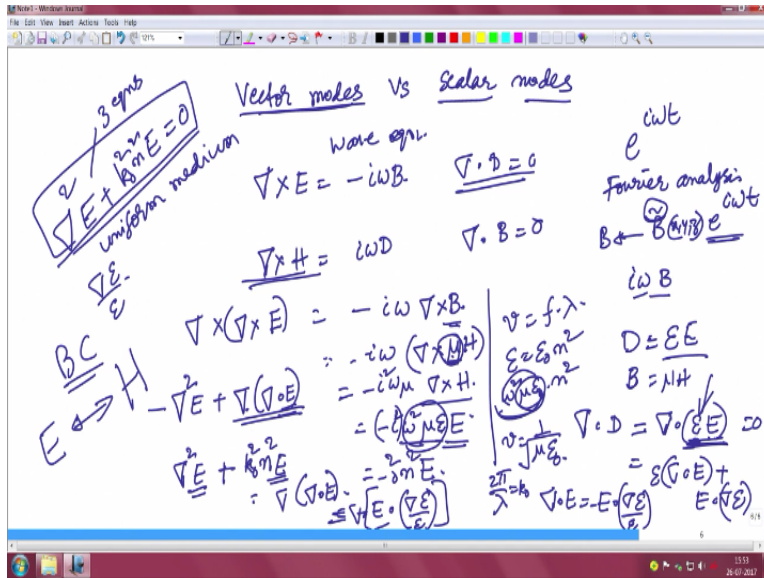 Note1 - Windows Journal
File Edit View Insert Actions Tools Help
121%
Vector modes Vs Scalar modes
3 eqns
∇²E + k₀²n²E = 0
uniform medium
∇ε/ε
BC
E ↔ H
wave eqn.
∇×E = -iωB. ∇·D = 0
∇×H = iωD ∇·B = 0
e^{iωt}
Fourier analysis
B ← B̃(x,y,z) e^{iωt}
iωB
∇×(∇×E) = -iω ∇×B.
= -iω (∇×μH)
-∇²E + ∇(∇·E) = -iωμ ∇×H.
= (-i²ω²με)E.
∇²E + k₀²n²E = -k₀²n²E.
= ∇(∇·E).
= -∇[E·(∇ε/ε)]
v = f·λ.
ε = ε₀n²
ω²με₀.n²
v = 1/√με₀.
2π/λ = k₀
D = εE
B = μH
∇·D = ∇·(εE) = 0
= ε(∇·E) + E·(∇ε)
∇·E = -E·(∇ε/ε)
6/6
6
15:53
26-07-2017